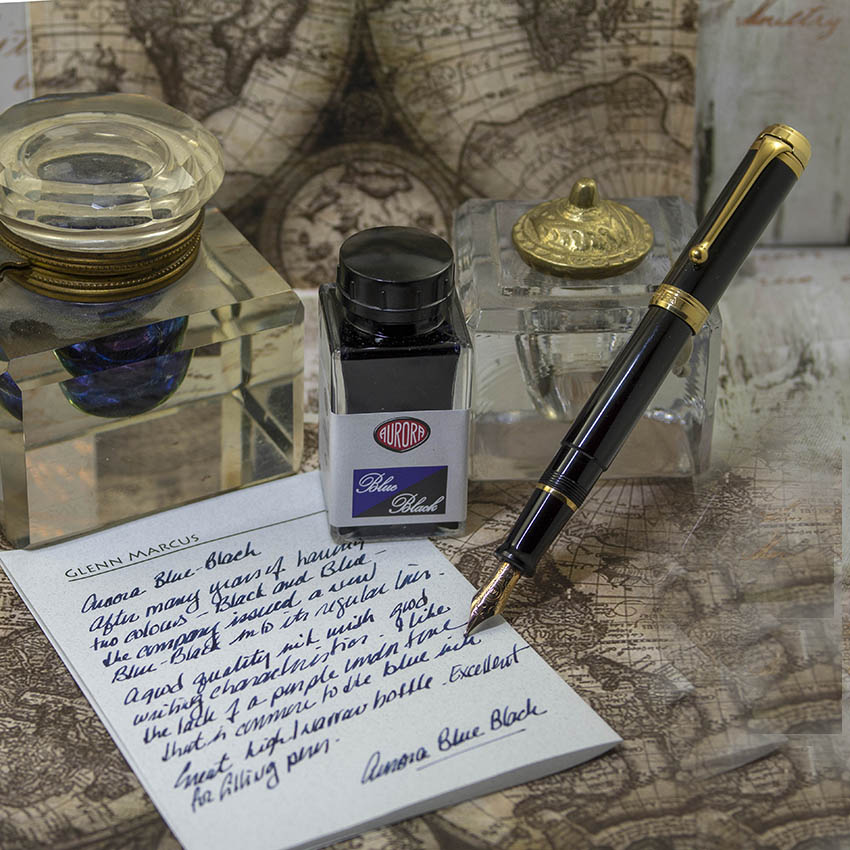 AURORA
Blue
Black
GLENN MARCUS
Aurora Blue-Black
After many years of having
two colours - Black and Blue -
the company issued a new
Blue-Black into its regular line.
A good quality ink with good
writing characteristics. I like
the lack of a purple undertone
that is common to the blue ink
Great high/narrow bottle. Excellent
for filling pens.
Aurora Blue Black